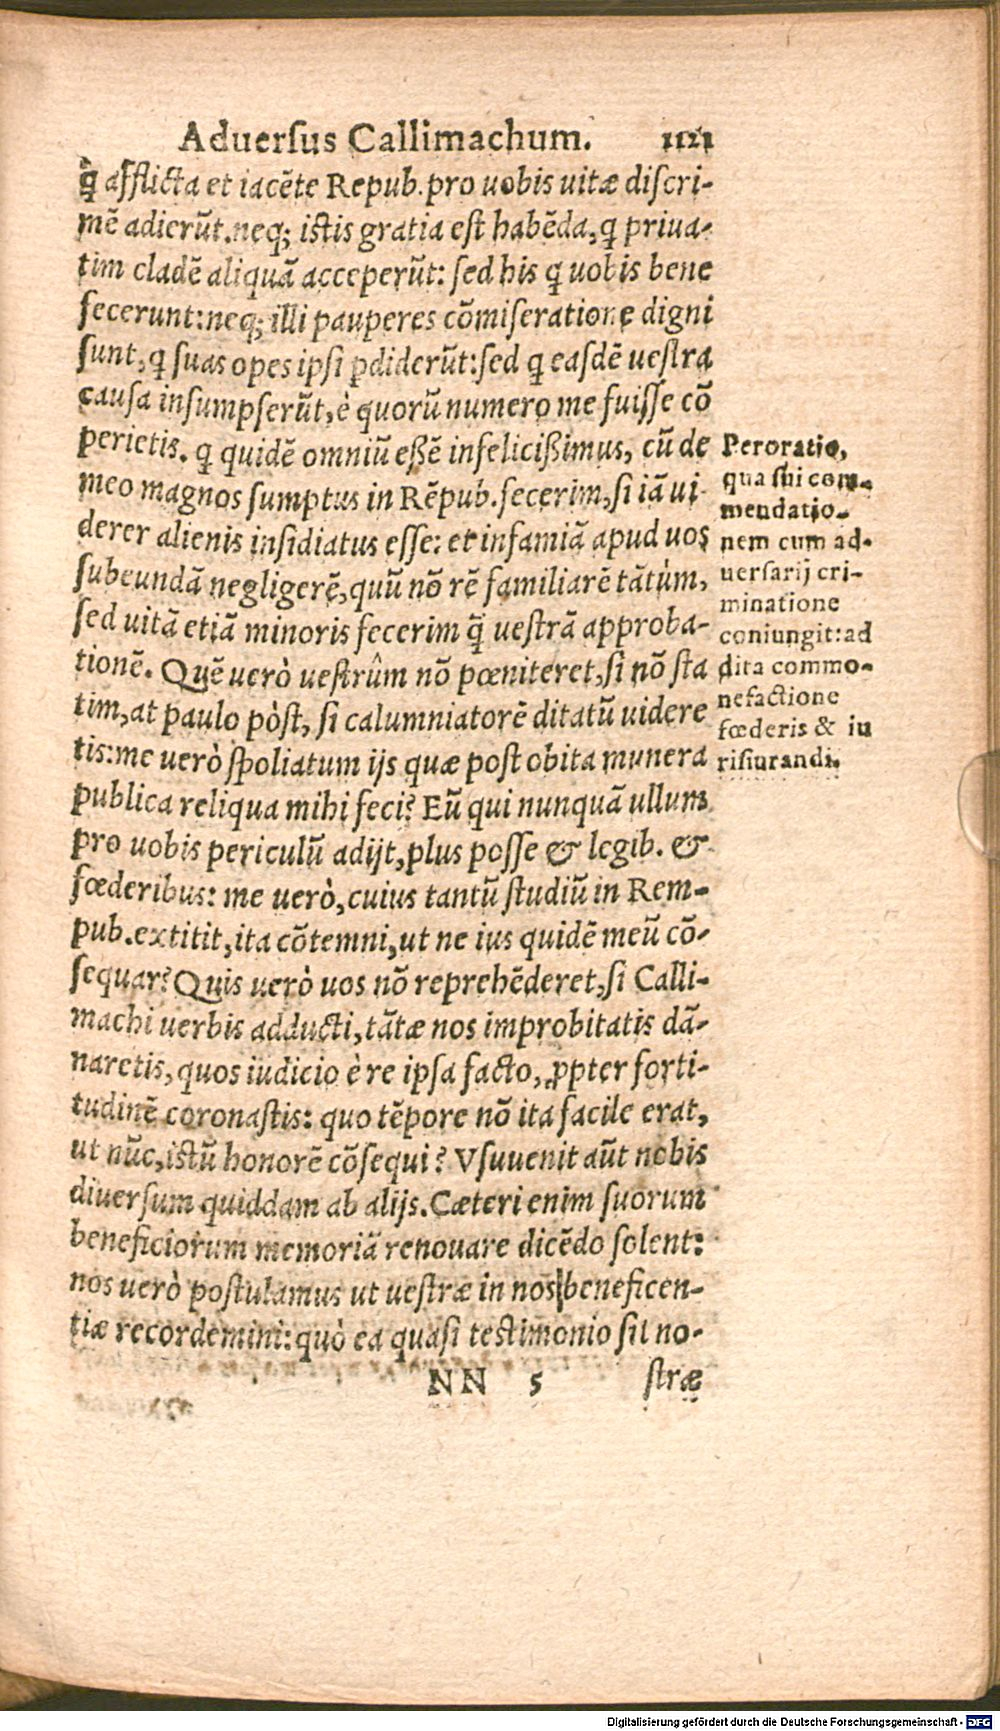 Aduersus Callimachum. 1121
q̃ afflicta et iacẽte Repub. pro uobis uitæ discri-
mẽ adierũt. neq; istis gratia est habẽda, q priua-
tim cladẽ aliquã acceperũt: sed his q uobis bene
fecerunt: neq; illi pauperes cõmiseratione digni
sunt, q suas opes ipsi pdiderũt: sed q easdẽ uestra
causa insumpserũt, è quorũ numero me fuisse cõ
perietis. q quidẽ omniũ eßẽ infelicißimus, cũ de
meo magnos sumptus in Rẽpub. fecerim, si iã ui-
derer alienis insidiatus esse: et infamiã apud uos
subeundã negligerẽ, quũ nõ rẽ familiarẽ tãtùm,
sed uitã etiã minoris fecerim q̃ uestrã approba-
tionẽ. Quẽ uerò uestrûm nõ pœniteret, si nõ sta
tim, at paulo pòst, si calumniatorẽ ditatũ uidere
tis: me uerò spoliatum ijs quæ post obita munera
publica reliqua mihi feci? Eũ qui nunquã ullum
pro uobis periculũ adijt, plus posse & legib. &
fœderibus: me uerò, cuius tantũ studiũ in Rem-
pub. extitit, ita cõtemni, ut ne ius quidẽ meũ cõ-
sequar? Quis uerò uos nõ reprehẽderet, si Calli-
machi uerbis adducti, tãtæ nos improbitatis dã-
naretis, quos iudicio è re ipsa facto, ꝓpter forti-
tudinẽ coronastis: quo tẽpore nõ ita facile erat,
ut nũc, istũ honorẽ cõsequi? Vsuuenit aũt nobis
diuersum quiddam ab alijs. Cæteri enim suorum
beneficiorum memoriã renouare dicẽdo solent:
nos uerò postulamus ut uestræ in nos beneficen-
tiæ recordemini: quò ea quasi testimonio sit no-
NN 5 stræ
Peroratio,
qua sui com-
mendatio-
nem cum ad-
uersarij cri-
minatione
coniungit: ad
dita commo-
nefactione
fœderis & iu
risiurandi.
Digitalisierung gefördert durch die Deutsche Forschungsgemeinschaft - DFG